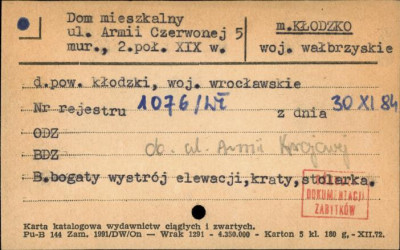 Dom mieszkalny
ul. Armii Czerwonej 5
mur., 2.poł. XIX w.
m.KŁODZKO
woj. wałbrzyskie
d.pow. kłodzki, woj. wrocławskie
Nr rejestru 1076/Wł z dnia 30 XI 84
ODZ
BDZ ob. ul. Armii Krajowej
B.bogaty wystrój elewacji,kraty,stolarka.
DOKUMENTACJI
ZABYTKÓW
Karta katalogowa wydawnictw ciągłych i zwartych.
Pu-B 144 Zam. 1991/DW/On — Wrak 1291 - 4.350.000 - Karton 5 kl. 180 g. -XII.72.